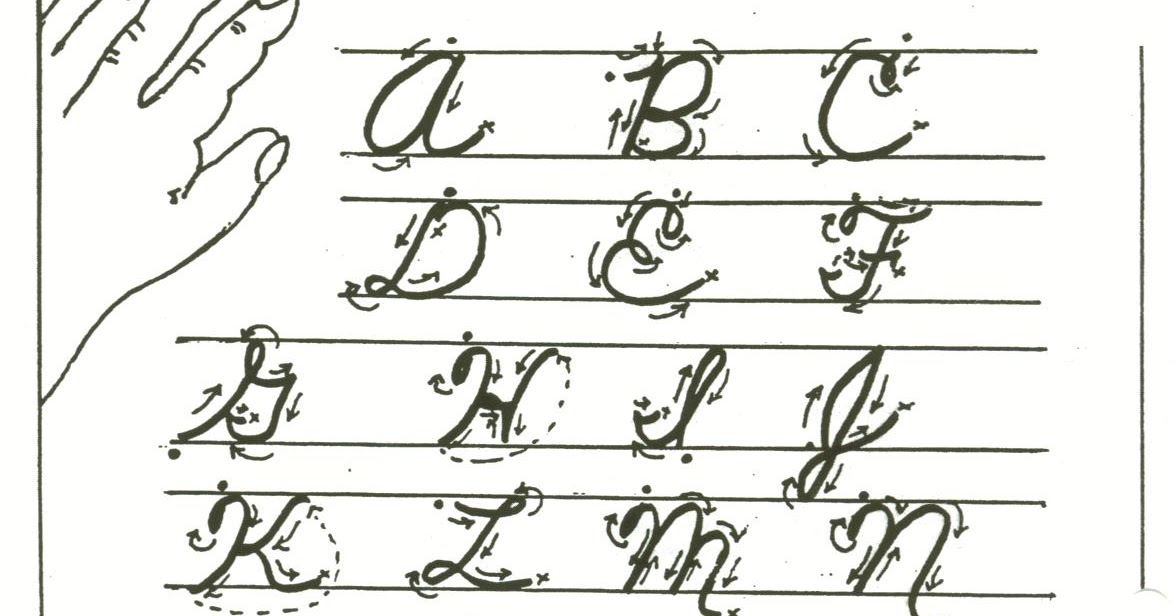 A B C
D E F
G H I J
K L M N